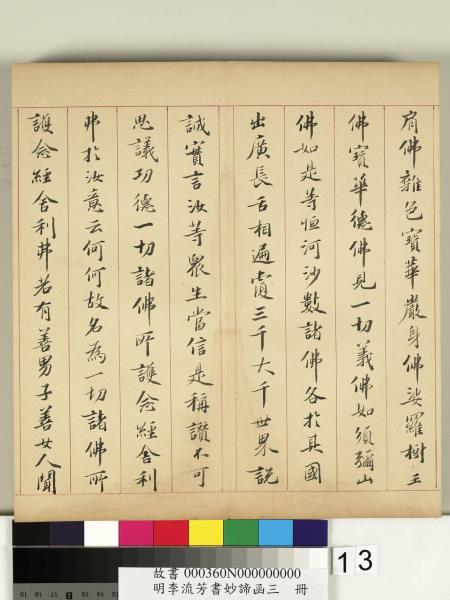 肩佛雜色寶華嚴身佛娑羅樹王
佛寶華德佛見一切義佛如須彌山
佛如是等恒河沙數諸佛各於其國
出廣長舌相遍覆三千大千世界説
誠實言汝等衆生當信是稱讚不可
思議功德一切諸佛所護念經舍利
弗於汝意云何何故名為一切諸佛所
護念經舍利弗若有善男子善女人聞
13
故書 000360N000000000
明李流芳書妙諦函三 冊